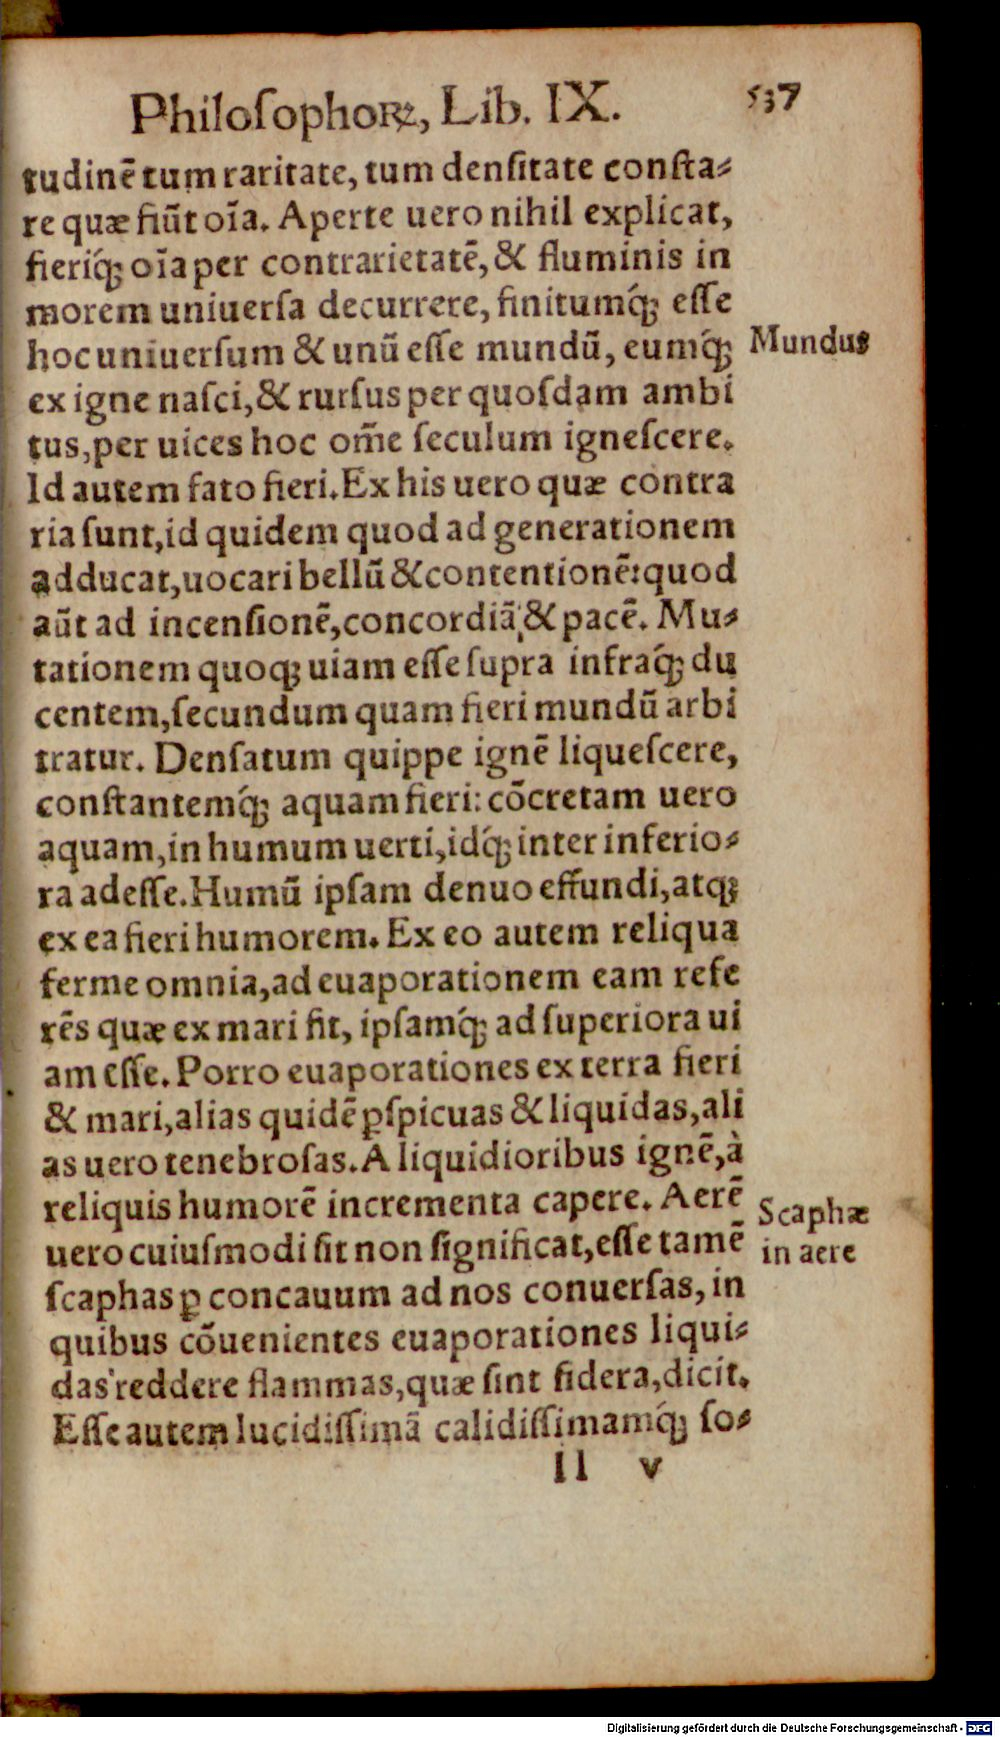 Philoſophoꝝ, Lib. IX. 537
tudinē tum raritate, tum denſitate conſta⸗
re quæ fiūt oīa. Aperte uero nihil explicat,
fieriq́; oīa per contrarietatē, & fluminis in
morem uniuerſa decurrere, finitumq́; eſſe
hoc uniuerſum & unū eſſe mundū, eumq́;
Mundus
ex igne naſci, & rurſus per quoſdam ambi
tus, per uices hoc om̄e ſeculum igneſcere.
Id autem fato fieri. Ex his uero quæ contra
ria ſunt, id quidem quod ad generationem
adducat, uocari bellū & contentionē: quod
aūt ad incenſionē, concordiā, & pacē. Mu⸗
tationem quoq; uiam eſſe ſupra infraq́; du
centem, ſecundum quam fieri mundū arbi
tratur. Denſatum quippe ignē liqueſcere,
conſtantemq́; aquam fieri: cōcretam uero
aquam, in humum uerti, idq́; inter inferio⸗
ra adeſſe. Humū ipſam denuo effundi, atq;
ex ea fieri humorem. Ex eo autem reliqua
ferme omnia, ad euaporationem eam refe
rēs quæ ex mari fit, ipſamq́; ad ſuperiora ui
am eſſe. Porro euaporationes ex terra fieri
& mari, alias quidē ꝑſpicuas & liquidas, ali
as uero tenebroſas. A liquidioribus ignē, à
reliquis humorē incrementa capere. Aerē
Scaphæ
uero cuiuſmodi ſit non ſignificat, eſſe tamē
in aere
ſcaphas ꝑ concauum ad nos conuerſas, in
quibus cōuenientes euaporationes liqui⸗
das reddere flammas, quæ ſint ſidera, dicit.
Eſſe autem lucidiſſimā calidiſſimamq́; ſo⸗
ll v
Digitalisierung gefördert durch die Deutsche Forschungsgemeinschaft - DFG